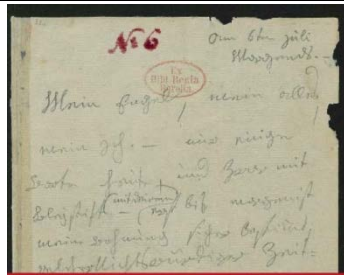 № 6
am 6ten Juli
Morgends. –
Ex
Biblioth. Regia
Berolin.
Mein Engel, mein alles
mein Ich. – nur einige
Worte heute, und zwar mit
Bleistift – (mit deinem) – erst bis morgen ist
meine Wohnung sicher bestimmt,
nichtswürdiger Zeit-